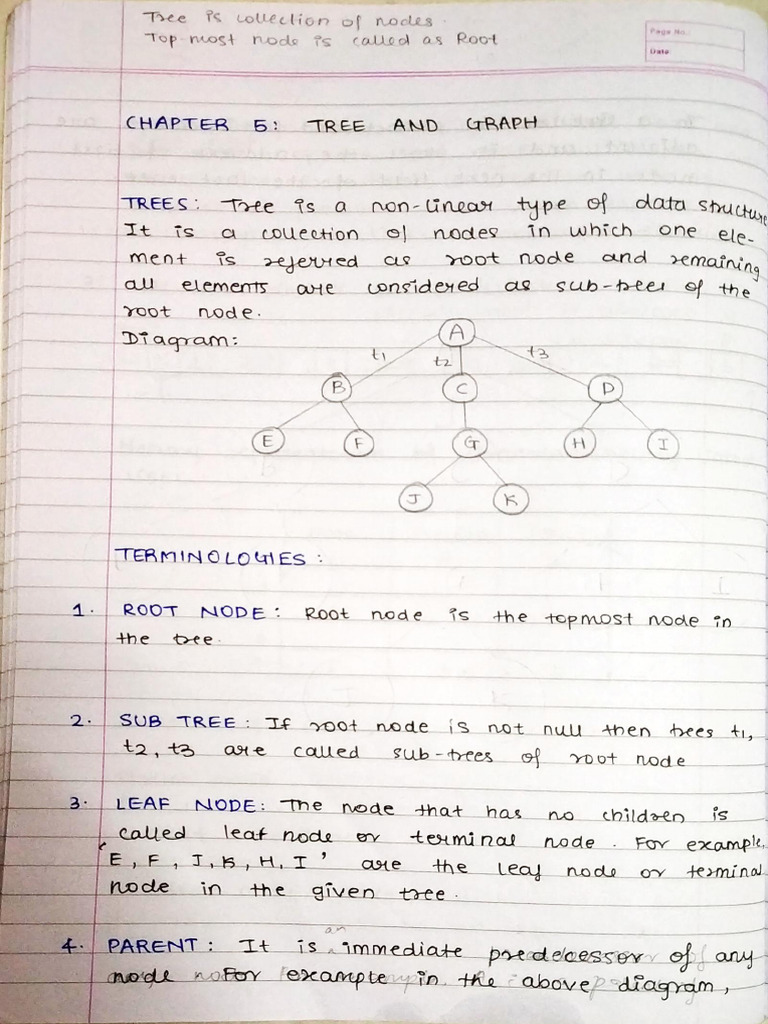 Tree is collection of nodes.
Top most node is called as Root
Page No.:
Date
CHAPTER 5: TREE AND GRAPH
TREES: Tree is a non-linear type of data structure
It is a collection of nodes in which one ele-
ment is referred as root node and remaining
all elements are considered as sub-trees of the
root node.
Diagram:
A
t1 t2 t3
B C D
E F G H I
J K
TERMINOLOGIES:
1. ROOT NODE: Root node is the topmost node in
the tree.
2. SUB TREE: If root node is not null then trees t1,
t2, t3 are called sub-trees of root node
3. LEAF NODE: The node that has no children is
called leaf node or terminal node. For example,
'E, F, J, K, H, I' are the leaf node or terminal
node in the given tree.
4. PARENT: It is an immediate predecessor of any
node For example in the above diagram,